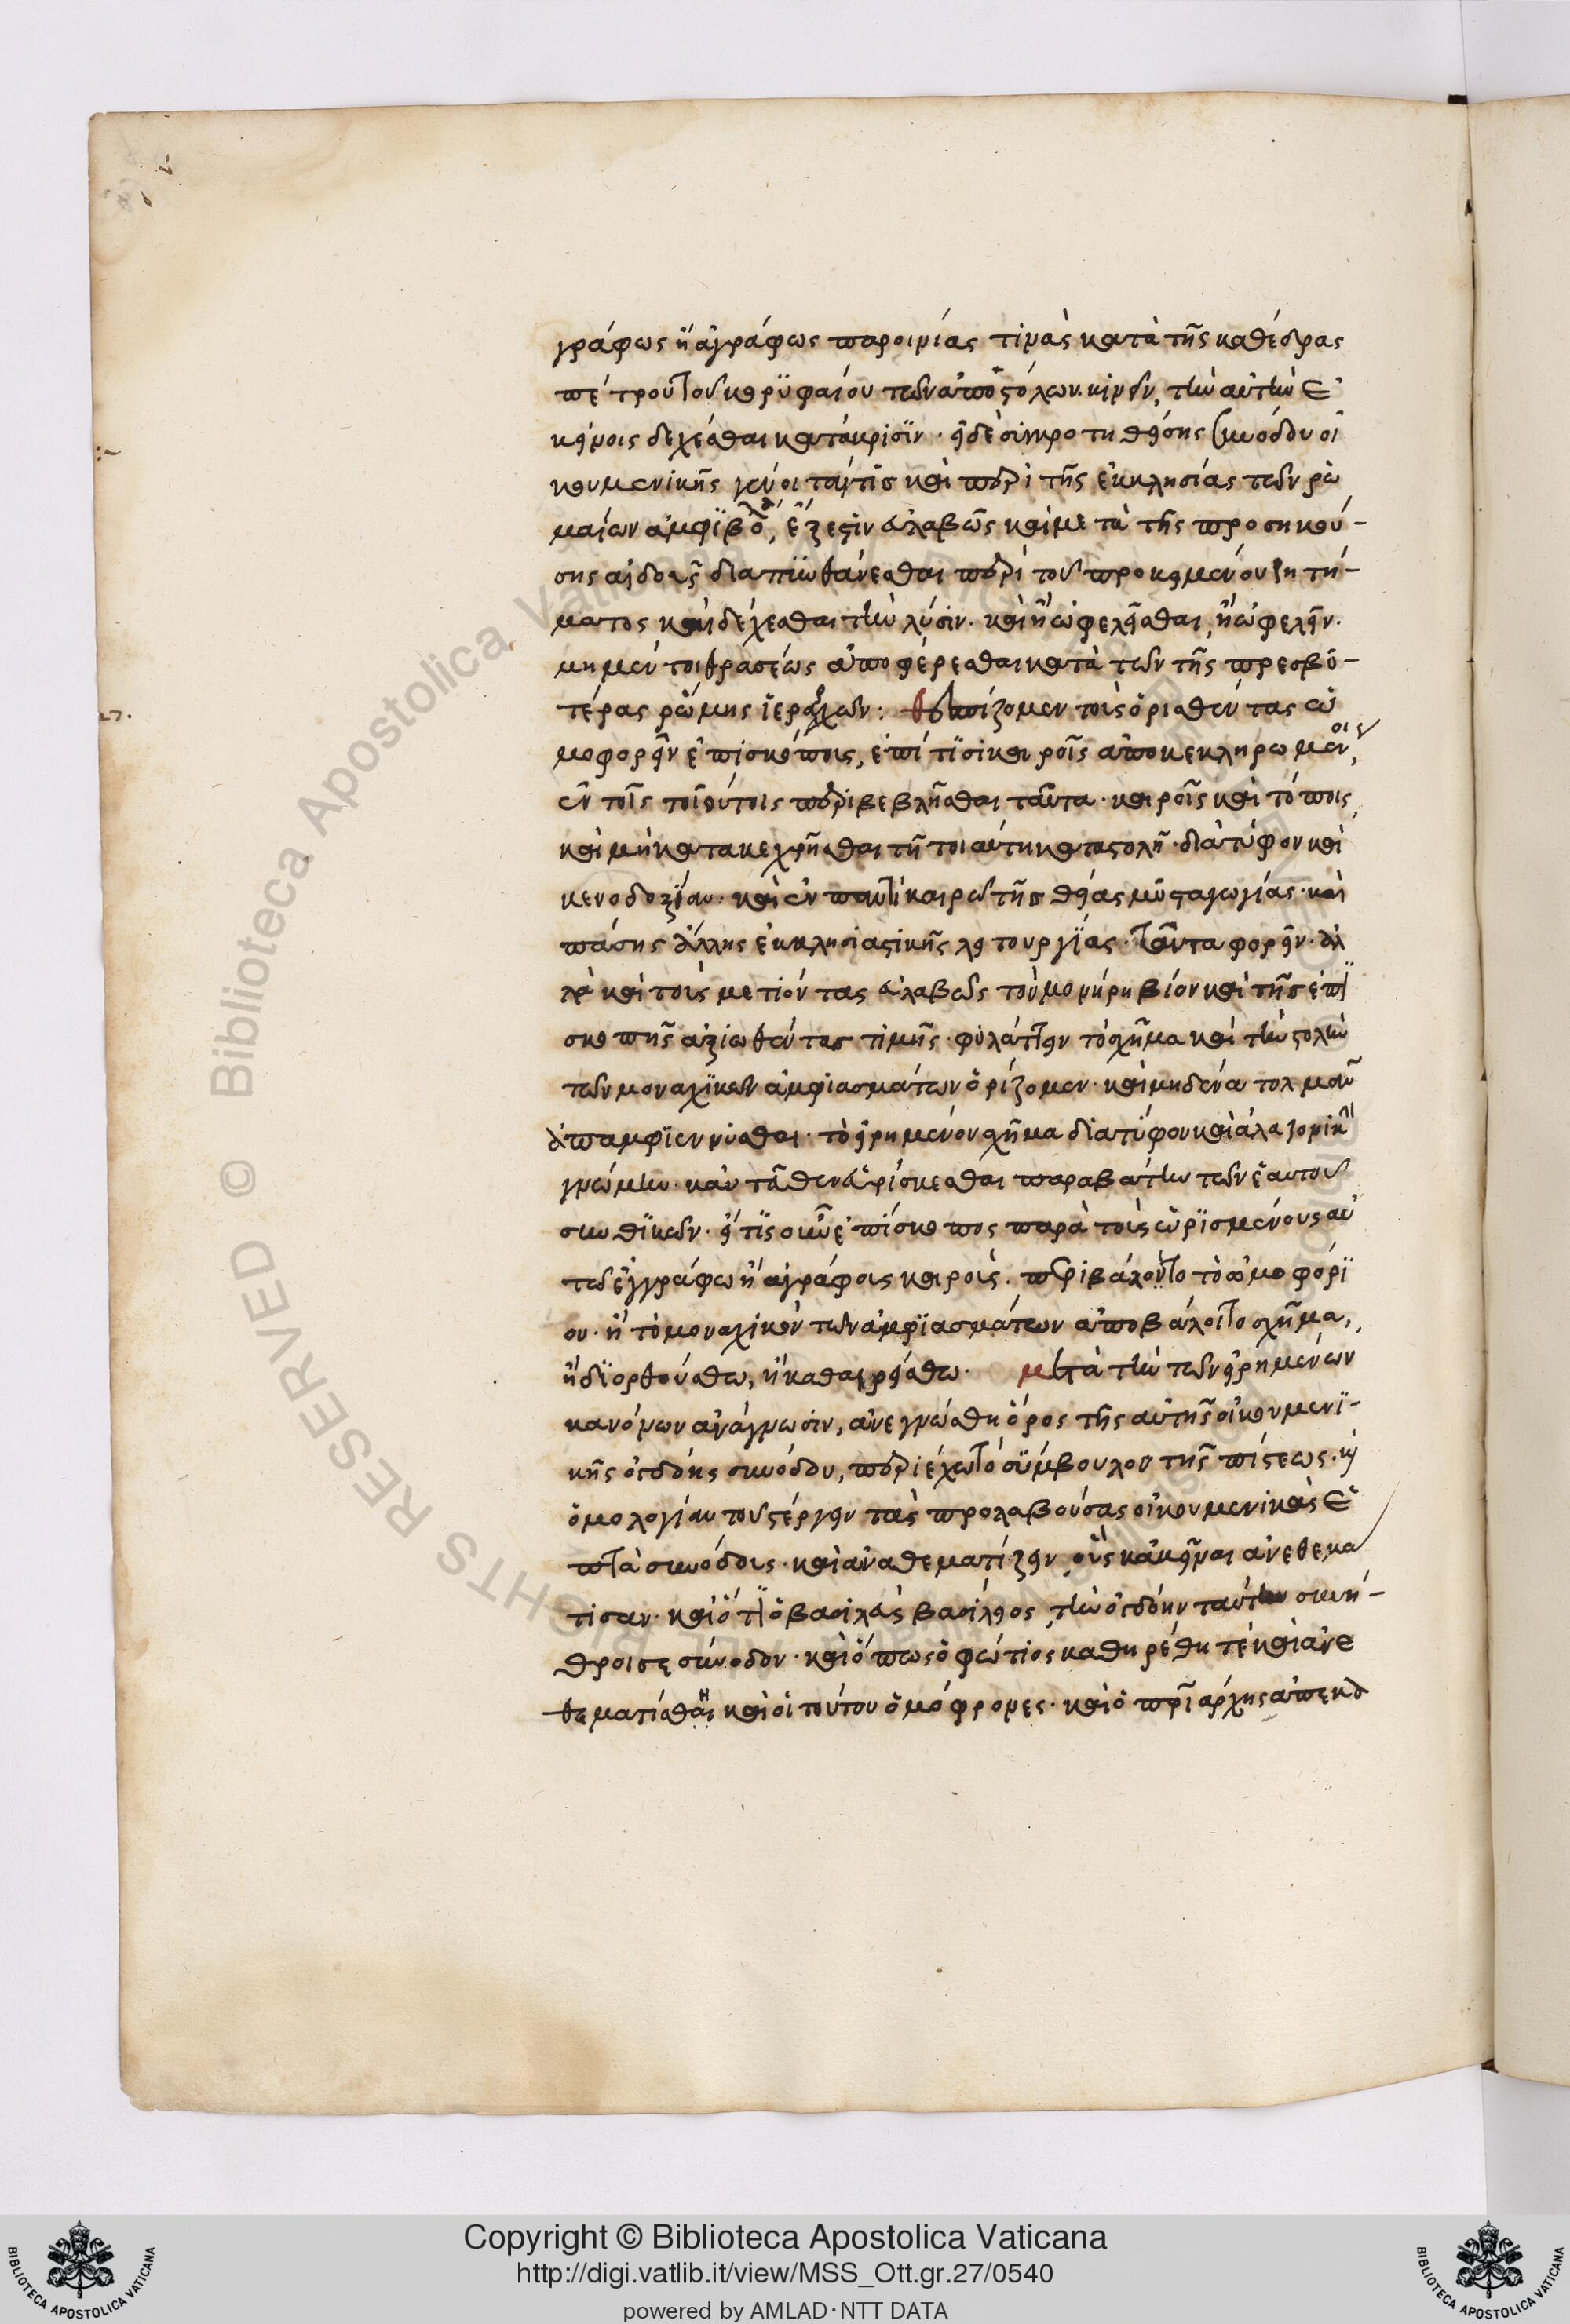 γράφως ἢ ἀγράφως παροιμίας τινὰς κατὰ τῆς καθέδρας
πέτρου τοῦ κορυφαίου τῶν ἀποστόλων κινῶν, τὴν αὐτὴν ἐ
κείνοις δέχεσθαι κατάκρισϊν· εἰ δὲ συγκροτηθείσης συνόδου οἰ
κουμενικῆς γένοιτο τίς καὶ περὶ τῆς ἐκκλησίας τῶν ῥω
μαίων ἀμφιβολία, ἔξεστιν εὐλαβῶς καὶ μετὰ τῆς προσηκού-
σης αἰδοῦς διαπυνθάνεσθαι περὶ τοῦ προκειμένου ζητή-
ματος καὶ δέχεσθαι τὴν λύσιν· καὶ ἢ ὠφελεῖσθαι, ἢ ὠφελεῖν·
μὴ μέν τοι θρασέως ἀποφέρεσθαι κατὰ τῶν τῆς πρεσβυ-
τέρας ῥώμης ἱεραρχῶν: θεσπίζομεν τοὺς ὁρισθέντας ὠ
27.
μοφορεῖν ἐπισκόποις, ἐπί τισι καιροῖς ἀποκεκληρωμένοις,
ἐν τοῖς τοιούτοις περιβεβλῆσθαι ταῦτα· καιροῖς καὶ τόποις,
καὶ μὴ κατακεχρῆσθαι τῇ τοιαύτῃ καταστολῇ· διὰ τύφον καὶ
κενοδοξίαν· καὶ ἐν παντὶ καιρῷ τῆς θείας μυσταγωγίας· καὶ
πάσης ἄλλης ἐκκλησιαστικῆς λειτουργίας· ταῦτα φορεῖν· ἀλ
λὰ καὶ τοὺς μετιόντας εὐλαβῶς τὸν μονήρη βίον καὶ τῆς ἐπι
σκοπῆς ἀξιωθέντας τιμῆς· φυλάττειν τὸ σχῆμα καὶ τὴν στολὴν
τῶν μοναχϊκῶν ἀμφιασμάτων ὁρίζομεν· καὶ μηδένα τολμᾶν
ἀπαμφιέννυσθαι· τὸ εἰρημένον σχῆμα διὰ τύφον καὶ ἀλαζονικὴν
γνώμην· κἂν τεῦθεν εὑρίσκεσθαι παραβάτην τῶν ἑαυτοῦ
συνθηκῶν· εἴ τις οὖν ἐπίσκοπος παρὰ τοὺς ὡρισμένους αὐ
τῷ ἐγγράφω ἢ ἀγράφοις καιροὺς. περιβάλοιτο τὸ ὠμοφόρι
ον· ἢ τὸ μοναχικὸν τῶν ἀμφϊασμάτων ἀποβάλοιτο σχῆμα,
ἢ διορθούσθω, ἢ καθαιρείσθω· μετὰ τὴν τῶν εἰρημένων
κανόνων ἀνάγνωσιν, ἀνεγνώσθη ὅρος τῆς αὐτῆς οἰκουμενϊ-
κῆς ὀγδόης συνόδου, περιέχων τὸ σύμβουλον τῆς πίστεως· κὶ
ὁμολογίαν τοῦ στέργειν τὰς προλαβούσας οἰκουμενικὰς ἑ
πτὰ συνόδοις· καὶ ἀναθεματίζειν οὓς κἀκεῖναι ἀνεθεμά
τισαν· καὶ ὅτι ὁ βασιλεὺς βασίλειος τὴν ὀγδόην ταύτην συνή-
θροισε σύνοδον· καὶ ὅπως ὁ φώτιος καθηρέθη τὲ καὶ ἀνε
θεματίσθη καὶ οἱ τούτου ὁμόφρονες· καὶ ὁ πατριάρχης ἀπεκα
Copyright © Biblioteca Apostolica Vaticana
http://digi.vatlib.it/view/MSS_Ott.gr.27/0540
powered by AMLAD·NTT DATA